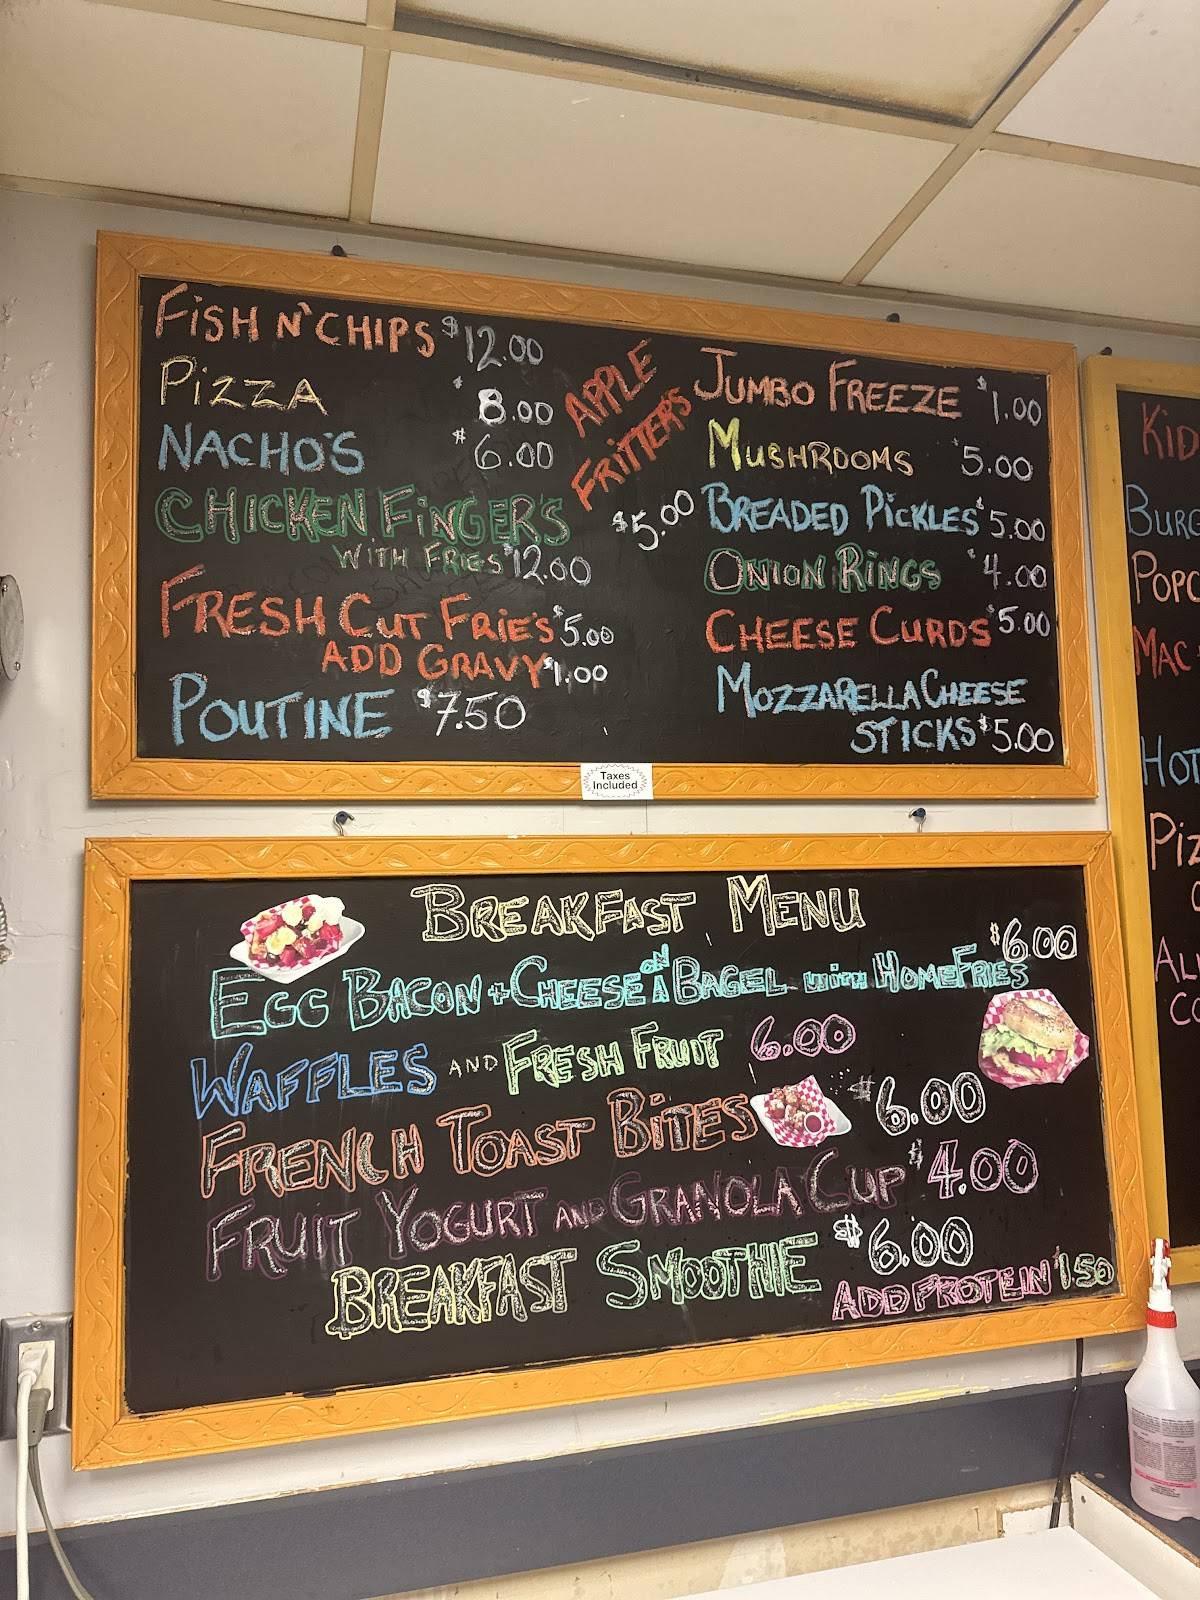 FISH N' CHIPS $12.00
PIZZA $8.00
NACHO'S $6.00
CHICKEN FINGER'S
WITH FRIES $12.00
FRESH CUT FRIE'S $5.00
ADD GRAVY $1.00
POUTINE $7.50
APPLE
FRITTER'S
$5.00
JUMBO FREEZE $1.00
MUSHROOMS $5.00
BREADED PICKLES $5.00
ONION RINGS $4.00
CHEESE CURDS $5.00
MOZZARELLA CHEESE
STICKS $5.00
Taxes
Included
BREAKFAST MENU
EGG BACON + CHEESE ON A BAGEL WITH HOMEFRIES $6.00
WAFFLES AND FRESH FRUIT 6.00
FRENCH TOAST BITES $6.00
FRUIT YOGURT AND GRANOLA CUP $4.00
BREAKFAST SMOOTHIE $6.00
ADD PROTEIN $1.50
KID
BURG
POPC
MAC
HOT
PIZ
AL
CO